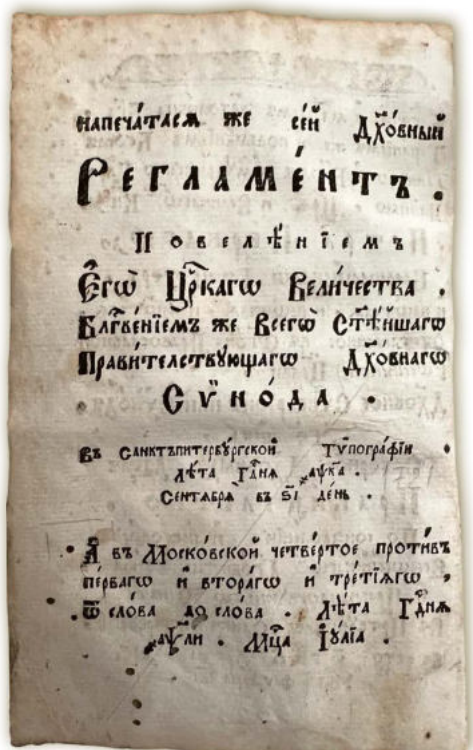 напеча́тасѧ же се́й Дх҃о́вный
Регламе́нтъ.
Повелѣ́нїемъ
Е҆гѡ̀ Цр҃каго̀ Вели́чества.
Блг҃ве́нїемъ же Всегѡ̀ Ст҃ѣ́йшагѡ
Прави́телствꙋющагѡ Дх҃о́внагѡ
Сѷно́да.
Въ Санктъпитербꙋ́ргской Тѷпогра́фїи
лѣ́та Гдⷭ҇нѧ ҂аѱк҃а.
Сентѧбрѧ̀ въ ѕ҃і де́нь.
А҆ въ Моско́вской четве́ртое про́тивъ
пе́рвагѡ и҆ втора́гѡ и҆ тре́тїѧгѡ,
ѿ сло́ва до сло́ва. лѣ́та Гдⷭ҇нѧ
҂аѱл҃и. Мц҃а І҆ꙋ́лїа.